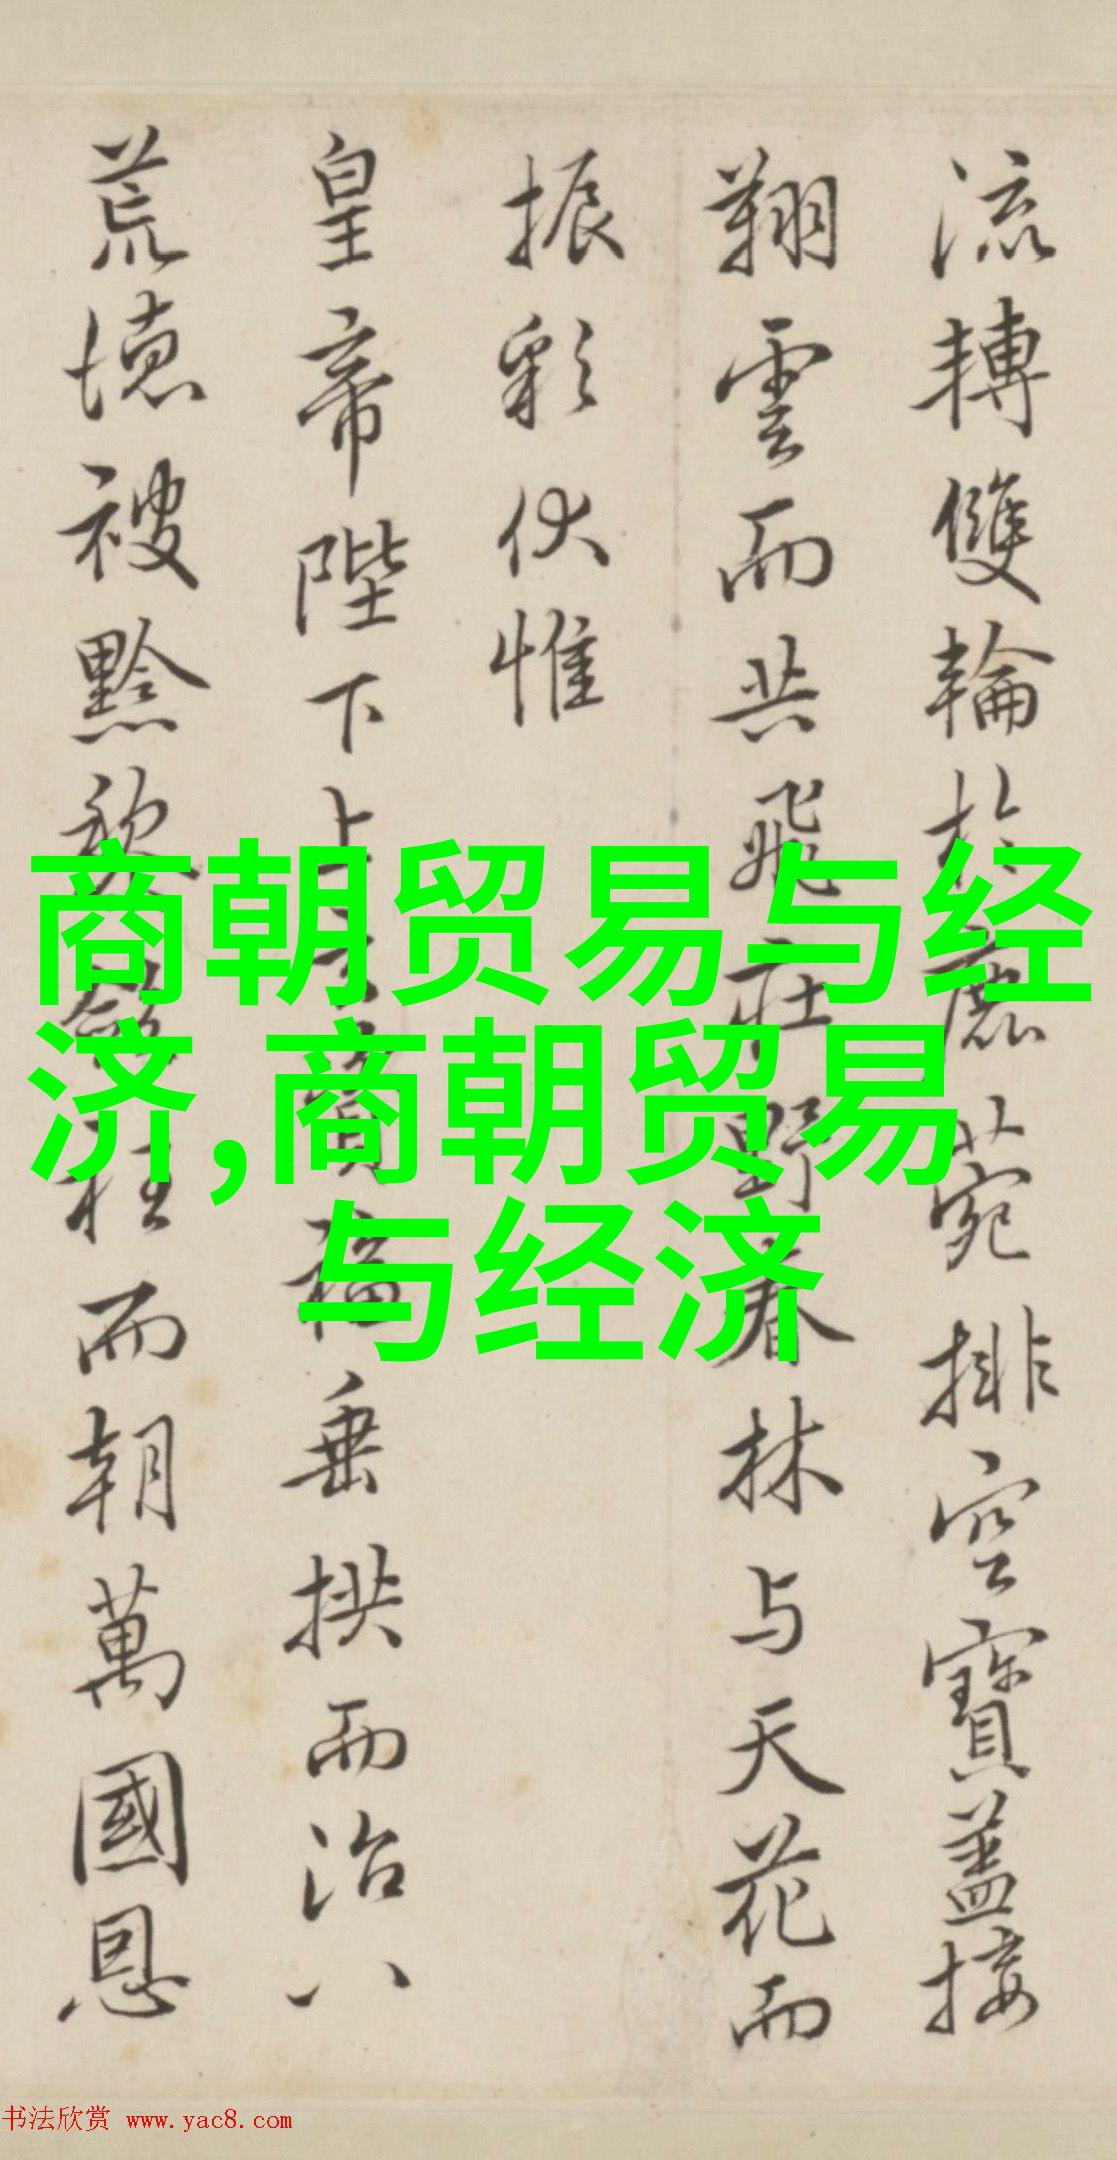 流轉雙輪於鹿菀排空寶蓋接
翔雲而共飛莊野春林与天花而
振彩伏惟
皇帝陛下上玄資福垂拱而治八
荒德被黔黎斂衽而朝萬國恩
商朝贸易与经
济,商朝贸易
与经济
书法欣赏 www.yac8.com